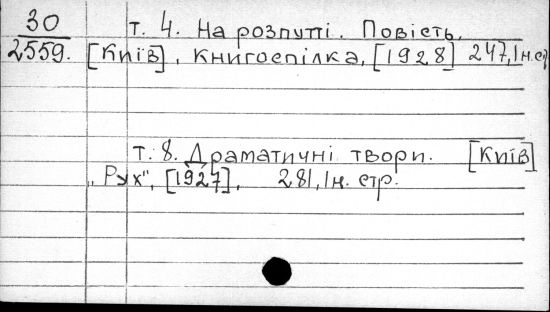 30 т. 4. На розпутті. Повість.
2559. [Київ], Книгоспілка, [1928] 247, 1 н. ст
т. 8. Драматичні твори. [Київ]
„Рух", [1927], 281, 1 н. стр.